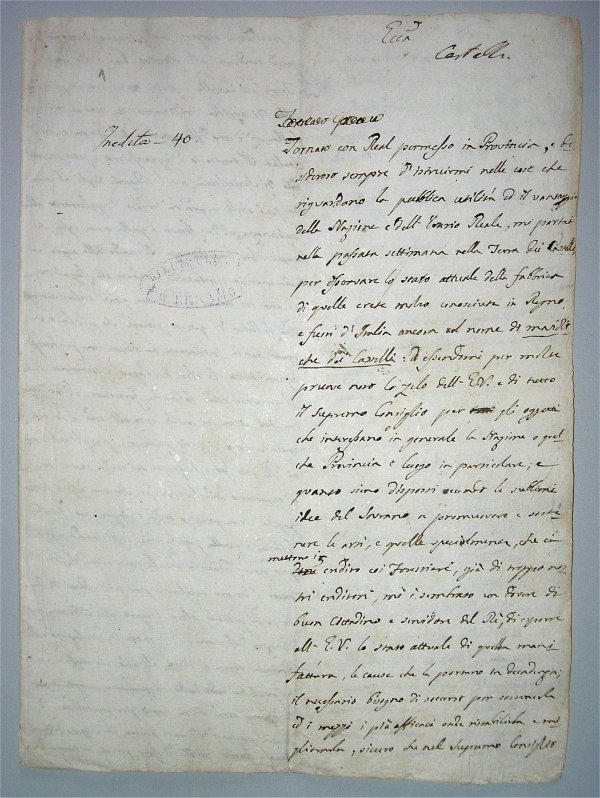 Ecc.a
Castelli.
Inedita - 40.
Tornato con Real permesso in Provincia, e de
sideroso sempre d'istruirmi nelle cose che
riguardano la pubblica utilità ed il vantaggio
della Nazione e dell'Erario Reale, mi portai
nella passata settimana nella Terra dei Castelli
per osservare lo stato attuale della fabbrica
di quelle crete molto conosciute in Regno,
e fuori d'Italia ancora col nome di majoli
che dei Castelli: Ed essendomi per molte
pruove noto lo zelo dell'E.V. e di tutto
il Supremo Consiglio per gli oggetti
che interessano in generale la Nazione o qual
che Provincia e luogo in particolare, e
quanto siano disposti secondo le sublimi
idee del Sovrano a promuovere e soste
nere le arti, e quelle specialmente, che ci
mettono in
credito coi Forastieri, già di troppo no
stri creditori, mi è sembrato un dovere di
buon Cittadino e servidore del Re, di esporre
all'E.V. lo stato attuale di quella mani
fattura, le cause che la portano in decadenza,
il necessario bisogno di soccorso per sostenerla
ed i mezzi i più efficaci onde ristabilirla e mi
gliorarla, sicuro che nel Supremo Consiglio